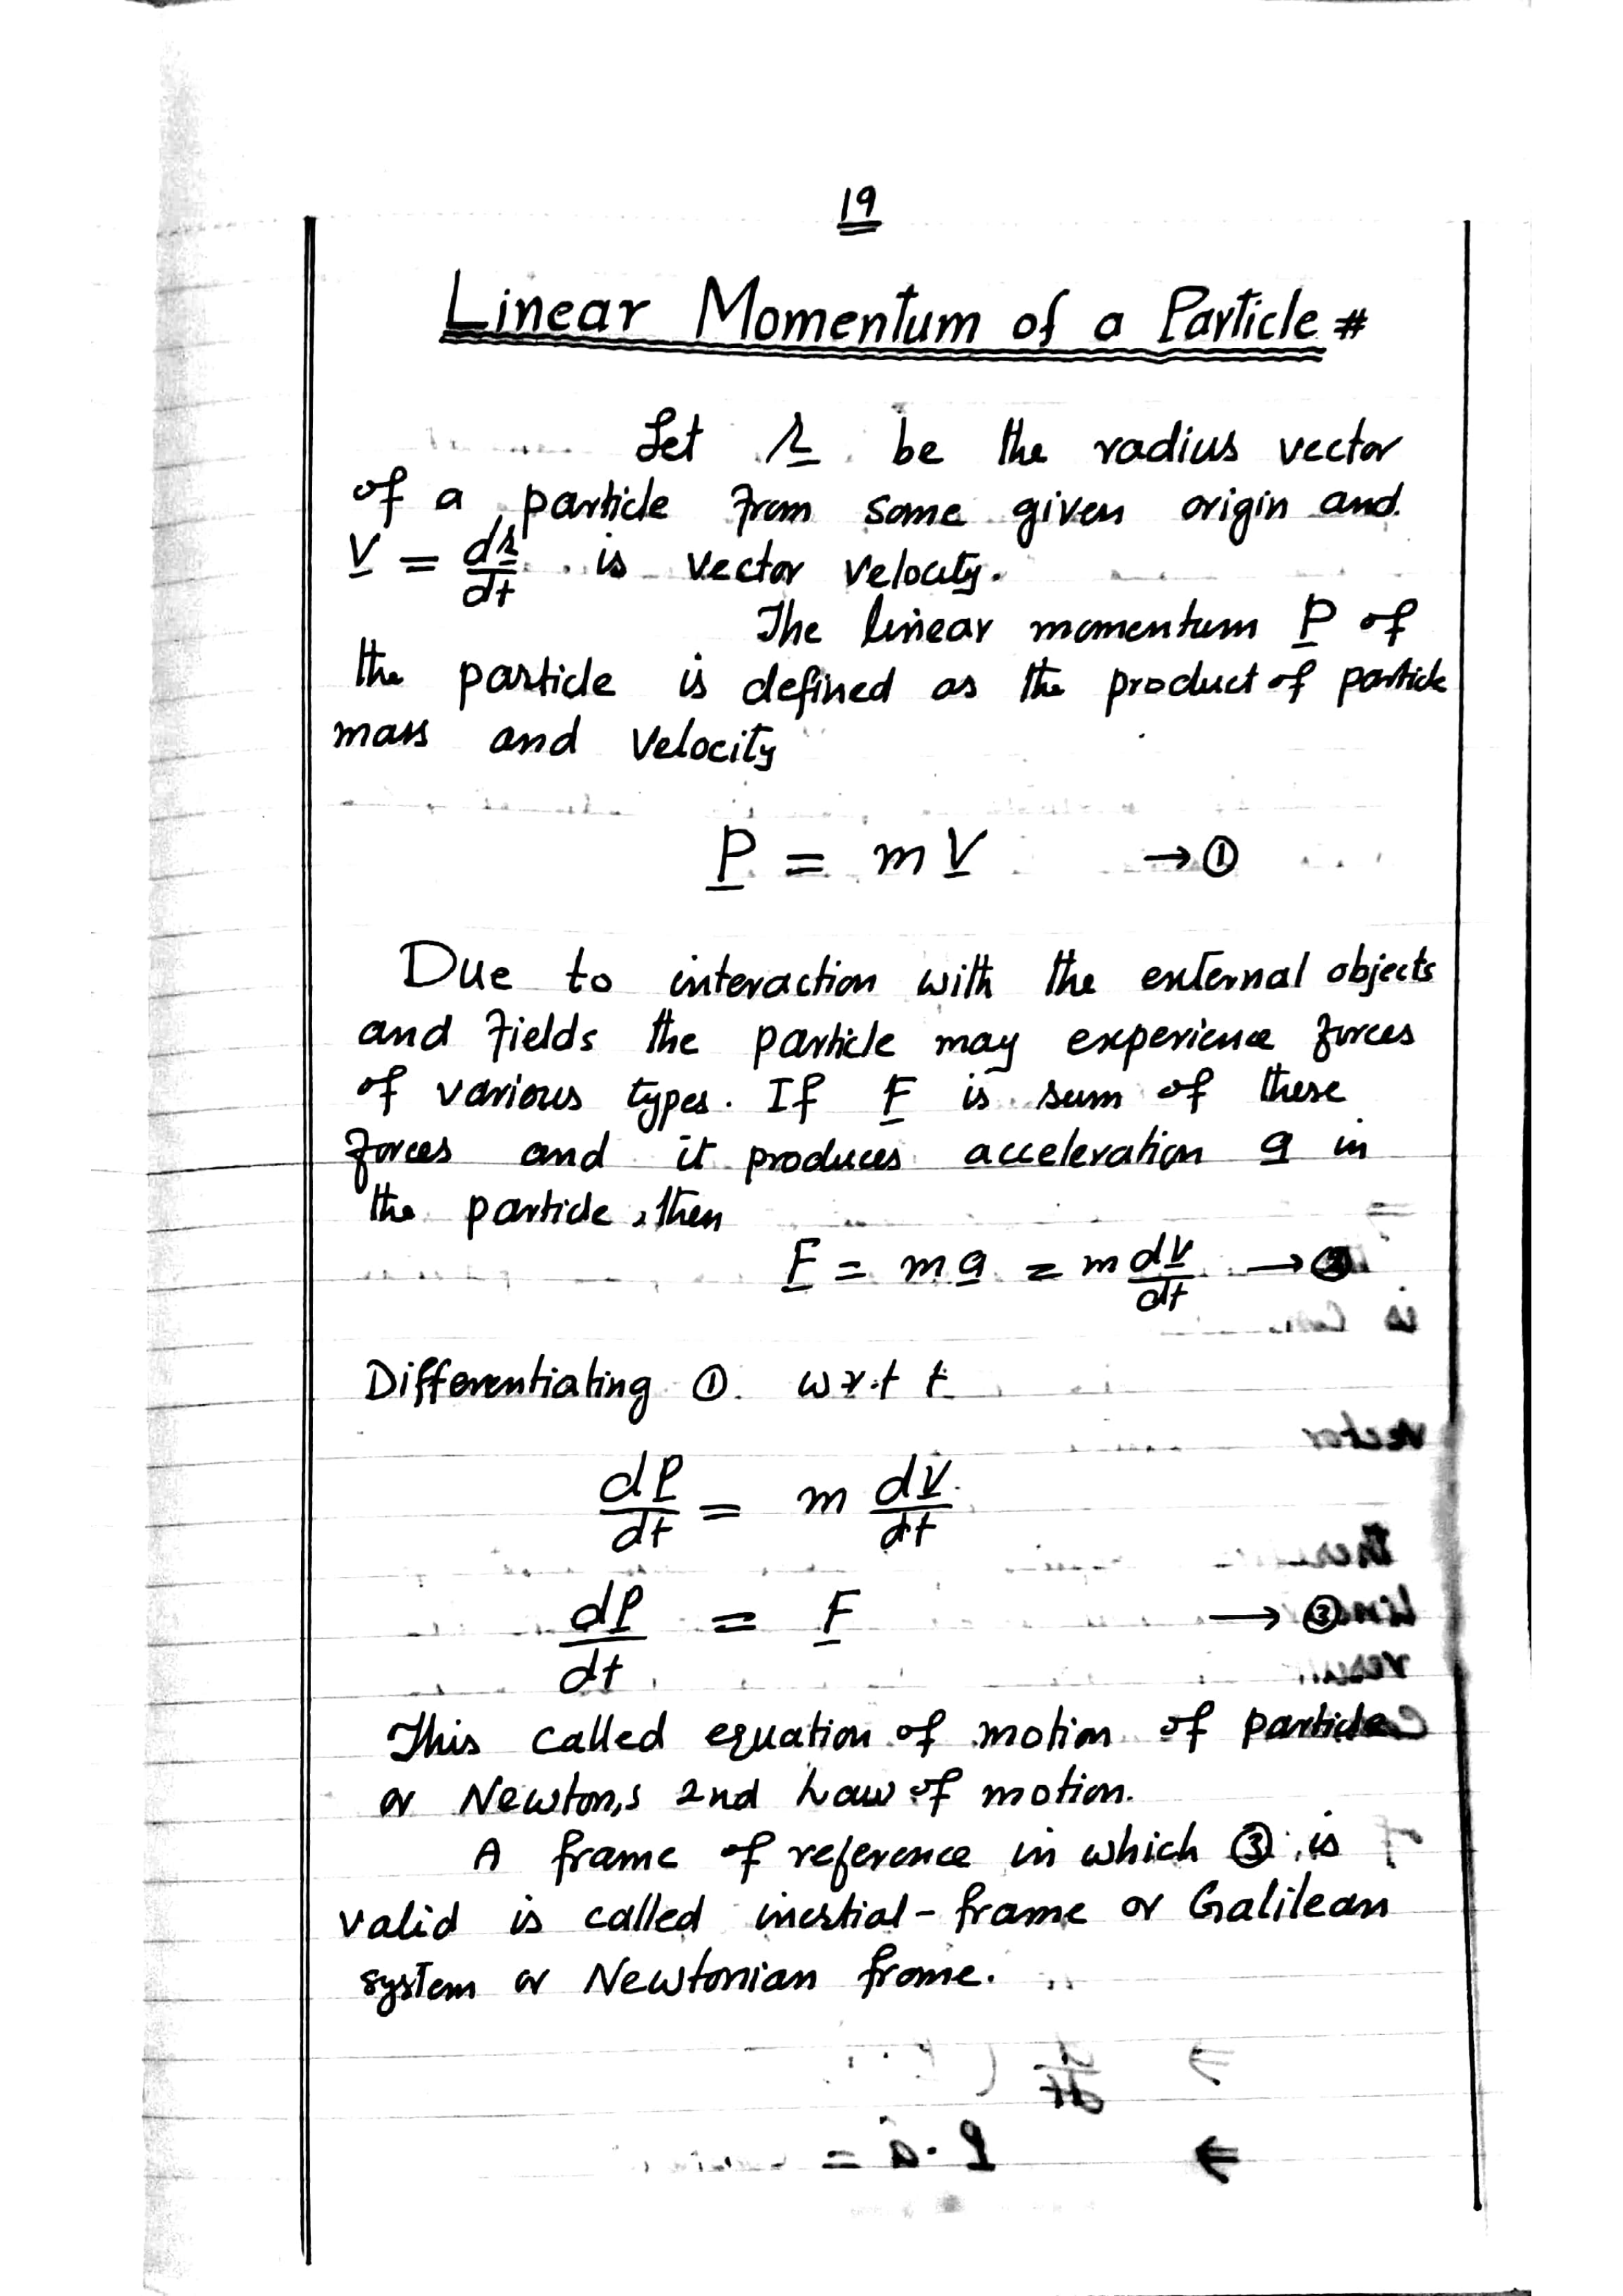 19
Linear Momentum of a Particle #
Let r be the radius vector
of a particle from some given origin and
V = dr/dt is vector velocity.
The linear momentum P of
the particle is defined as the product of particle
mass and Velocity
P = m V → ①
Due to interaction with the external objects
and fields the particle may experience forces
of various types. If F is sum of these
forces and it produces acceleration a in
the particle, then
F = m a = m dV/dt → ②
Differentiating ① w.r.t t
dP/dt = m dV/dt
dP/dt = F → ③
This called equation of motion of particle
or Newton,s 2nd Law of motion.
A frame of reference in which ③ is
valid is called inertial-frame or Galilean
system or Newtonian frame.